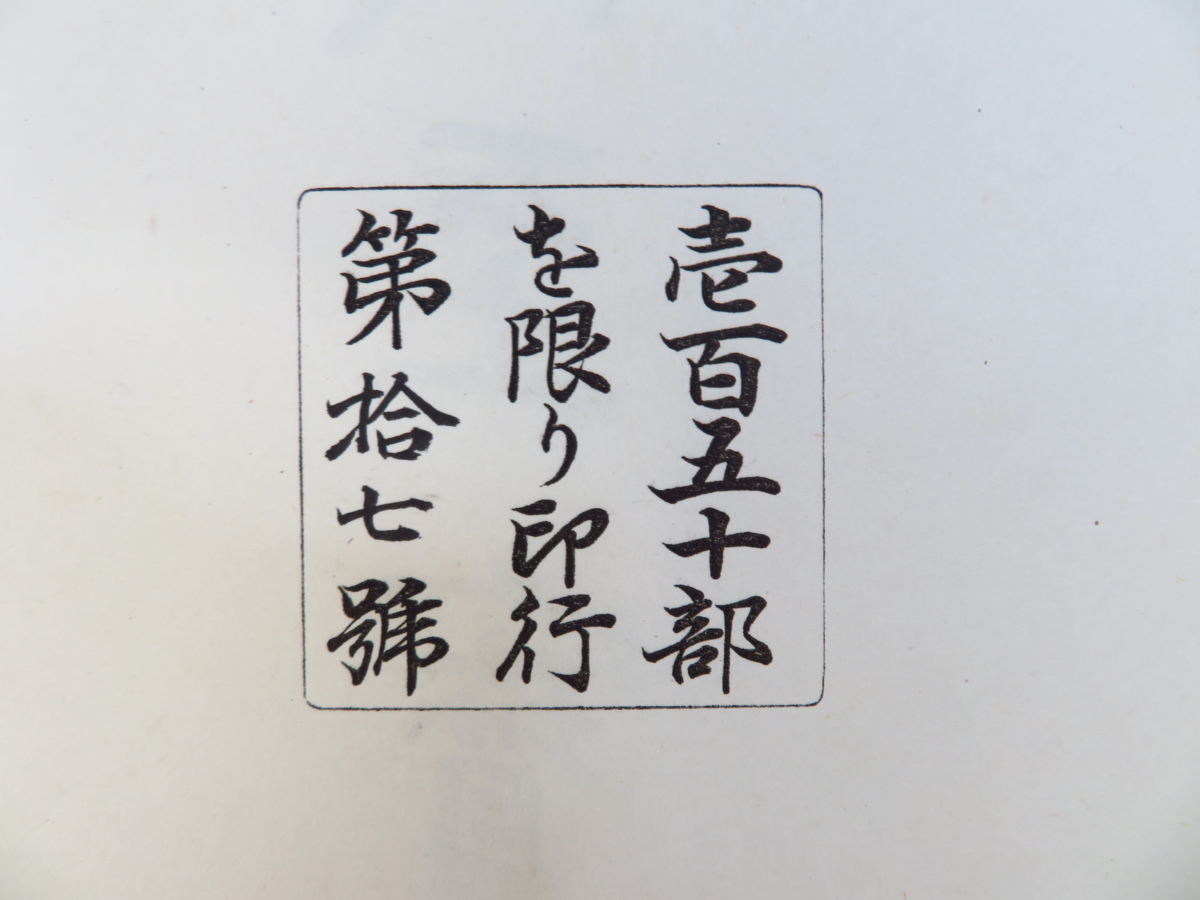 壱百五十部
を限り印行
第拾七號